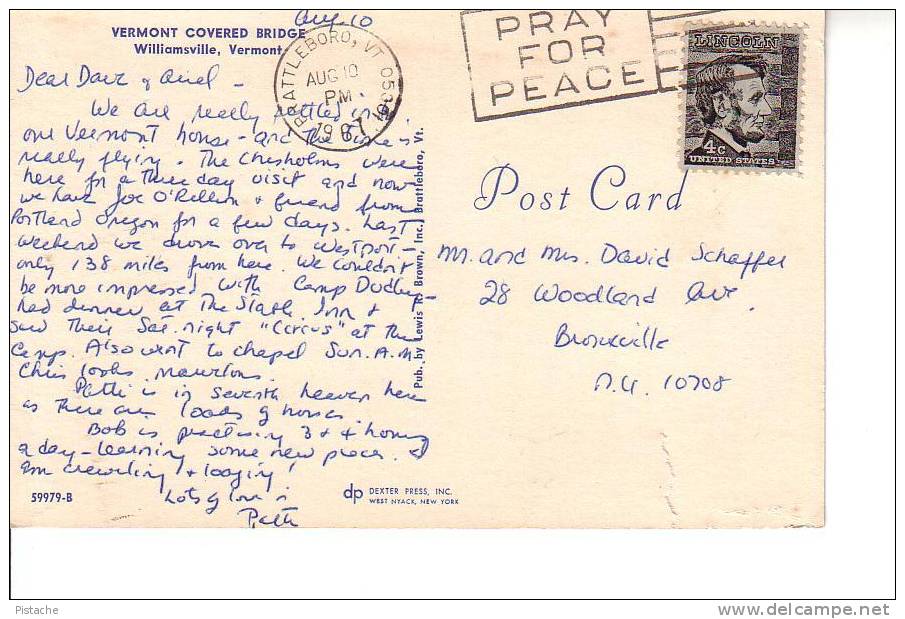 Aug 10
VERMONT COVERED BRIDGE
Williamsville, Vermont
BRATTLEBORO, VT
AUG 10
PM
1967
PRAY
FOR
PEACE
LINCOLN
4c
UNITED STATES
Dear Dave & Ariel -
We are really settled in
our Vermont house - and the time is
really flying. The Chisholms were
here for a three day visit and now
we have Joe & friend from
Portland Oregon for a few days. Last
weekend we drove over to Westport -
only 138 miles from here. We couldn't
be more impressed with Camp Dudley -
had dinner at The Inn &
saw their Sat. night "Circus" at the
Camp. Also went to chapel Sun. A.M.
Chris looks marvelous.
Patti is in seventh heaven here
as there are loads of horses
Bob is practising 3 & 4 hours
a day - learning some new pieces. I
am crewling & lazying!
Lots of love
Path
Pub. by Lewis R. Brown, Inc., Brattleboro, Vt.
Post Card
Mr. and Mrs. David Schaffer
28 Woodland Ave.
Bronxville
N.Y. 10708
59979-B
dp DEXTER PRESS, INC.
WEST NYACK, NEW YORK
Pistache
www.delcampe.net